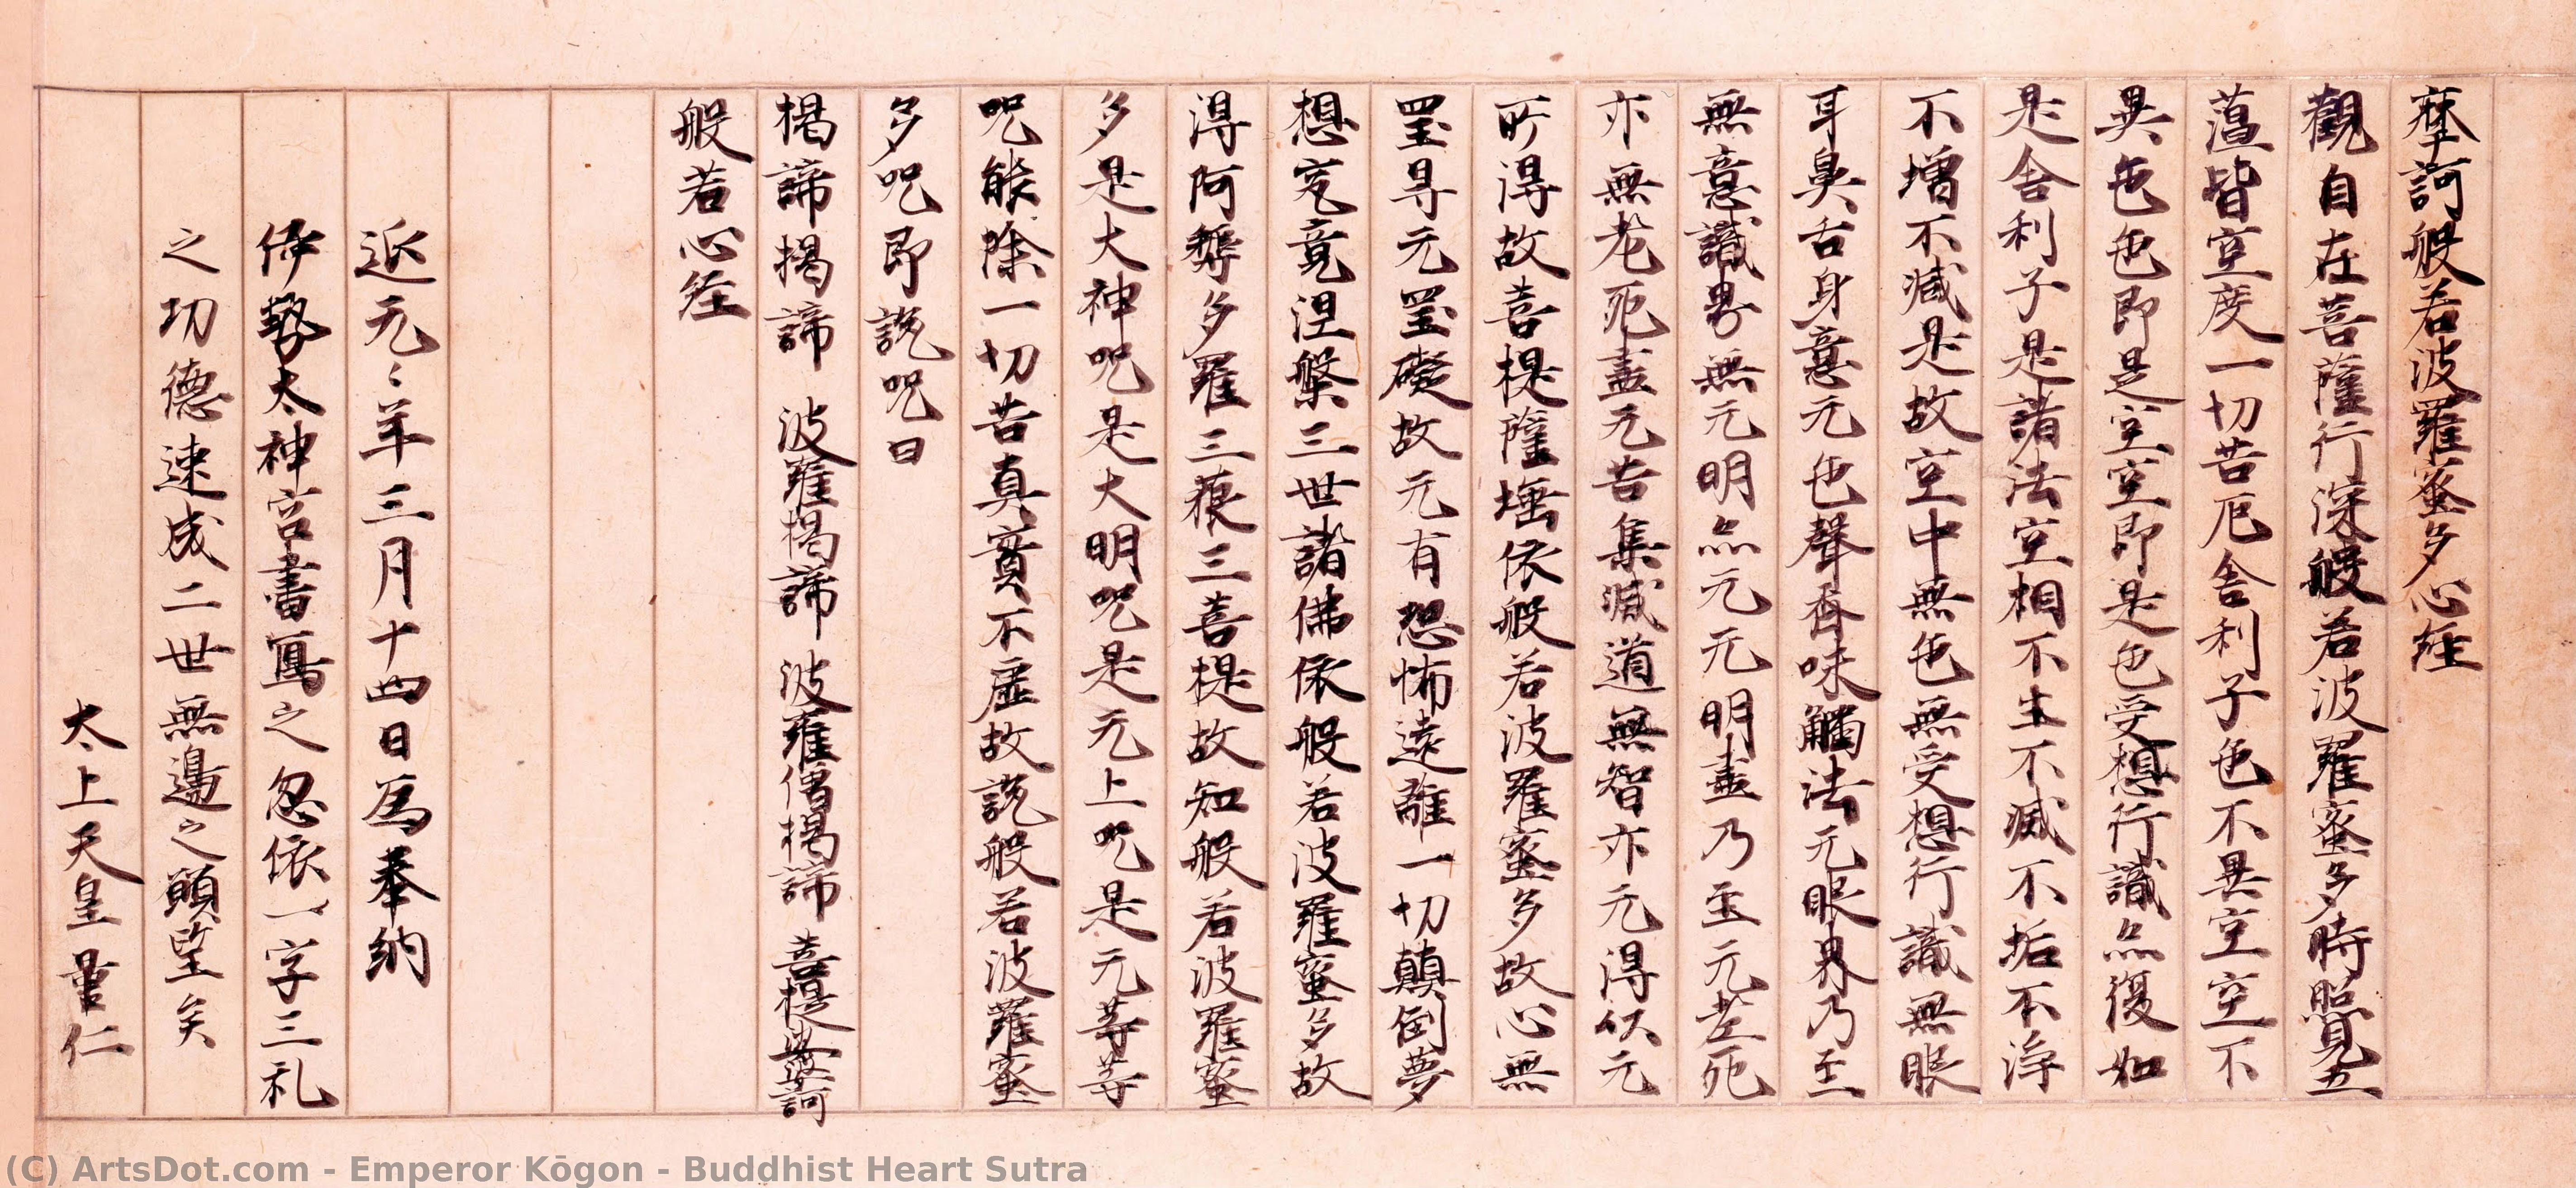 摩訶般若波羅蜜多心経
觀自在菩薩行深般若波羅蜜多時照見五
蕰皆空度一切苦厄舍利子色不異空空不
異色色即是空空即是色受想行識亦復如
是舎利子是諸法空相不生不滅不垢不浄
不增不滅是故空中無色無受想行識無眼
耳鼻舌身意无色聲香味觸法无眼界乃至
無意識界無无明亦无无明盡乃至无老死
亦無老死盡无苦集滅道無智亦无得以无
所得故菩提薩埵依般若波羅蜜多故心無
罣㝵无罣礙故无有恐怖遠離一切顛倒夢
想究竟涅槃三世諸佛依般若波羅蜜多故
得阿耨多羅三藐三菩提故知般若波羅蜜
多是大神呪是大明呪是无上呪是无等等
呪能除一切苦真實不虚故說般若波羅蜜
多呪即說呪曰
揭諦揭諦 波羅揭諦 波羅僧揭諦 菩提娑婆訶
般若心経
延元〻年三月十四日為奉納
伊勢太神宮書寫之忽依一字三礼
之功德速成二世無邊之願望矣
太上天皇量仁
(C) ArtsDot.com - Emperor Kōgon - Buddhist Heart Sutra